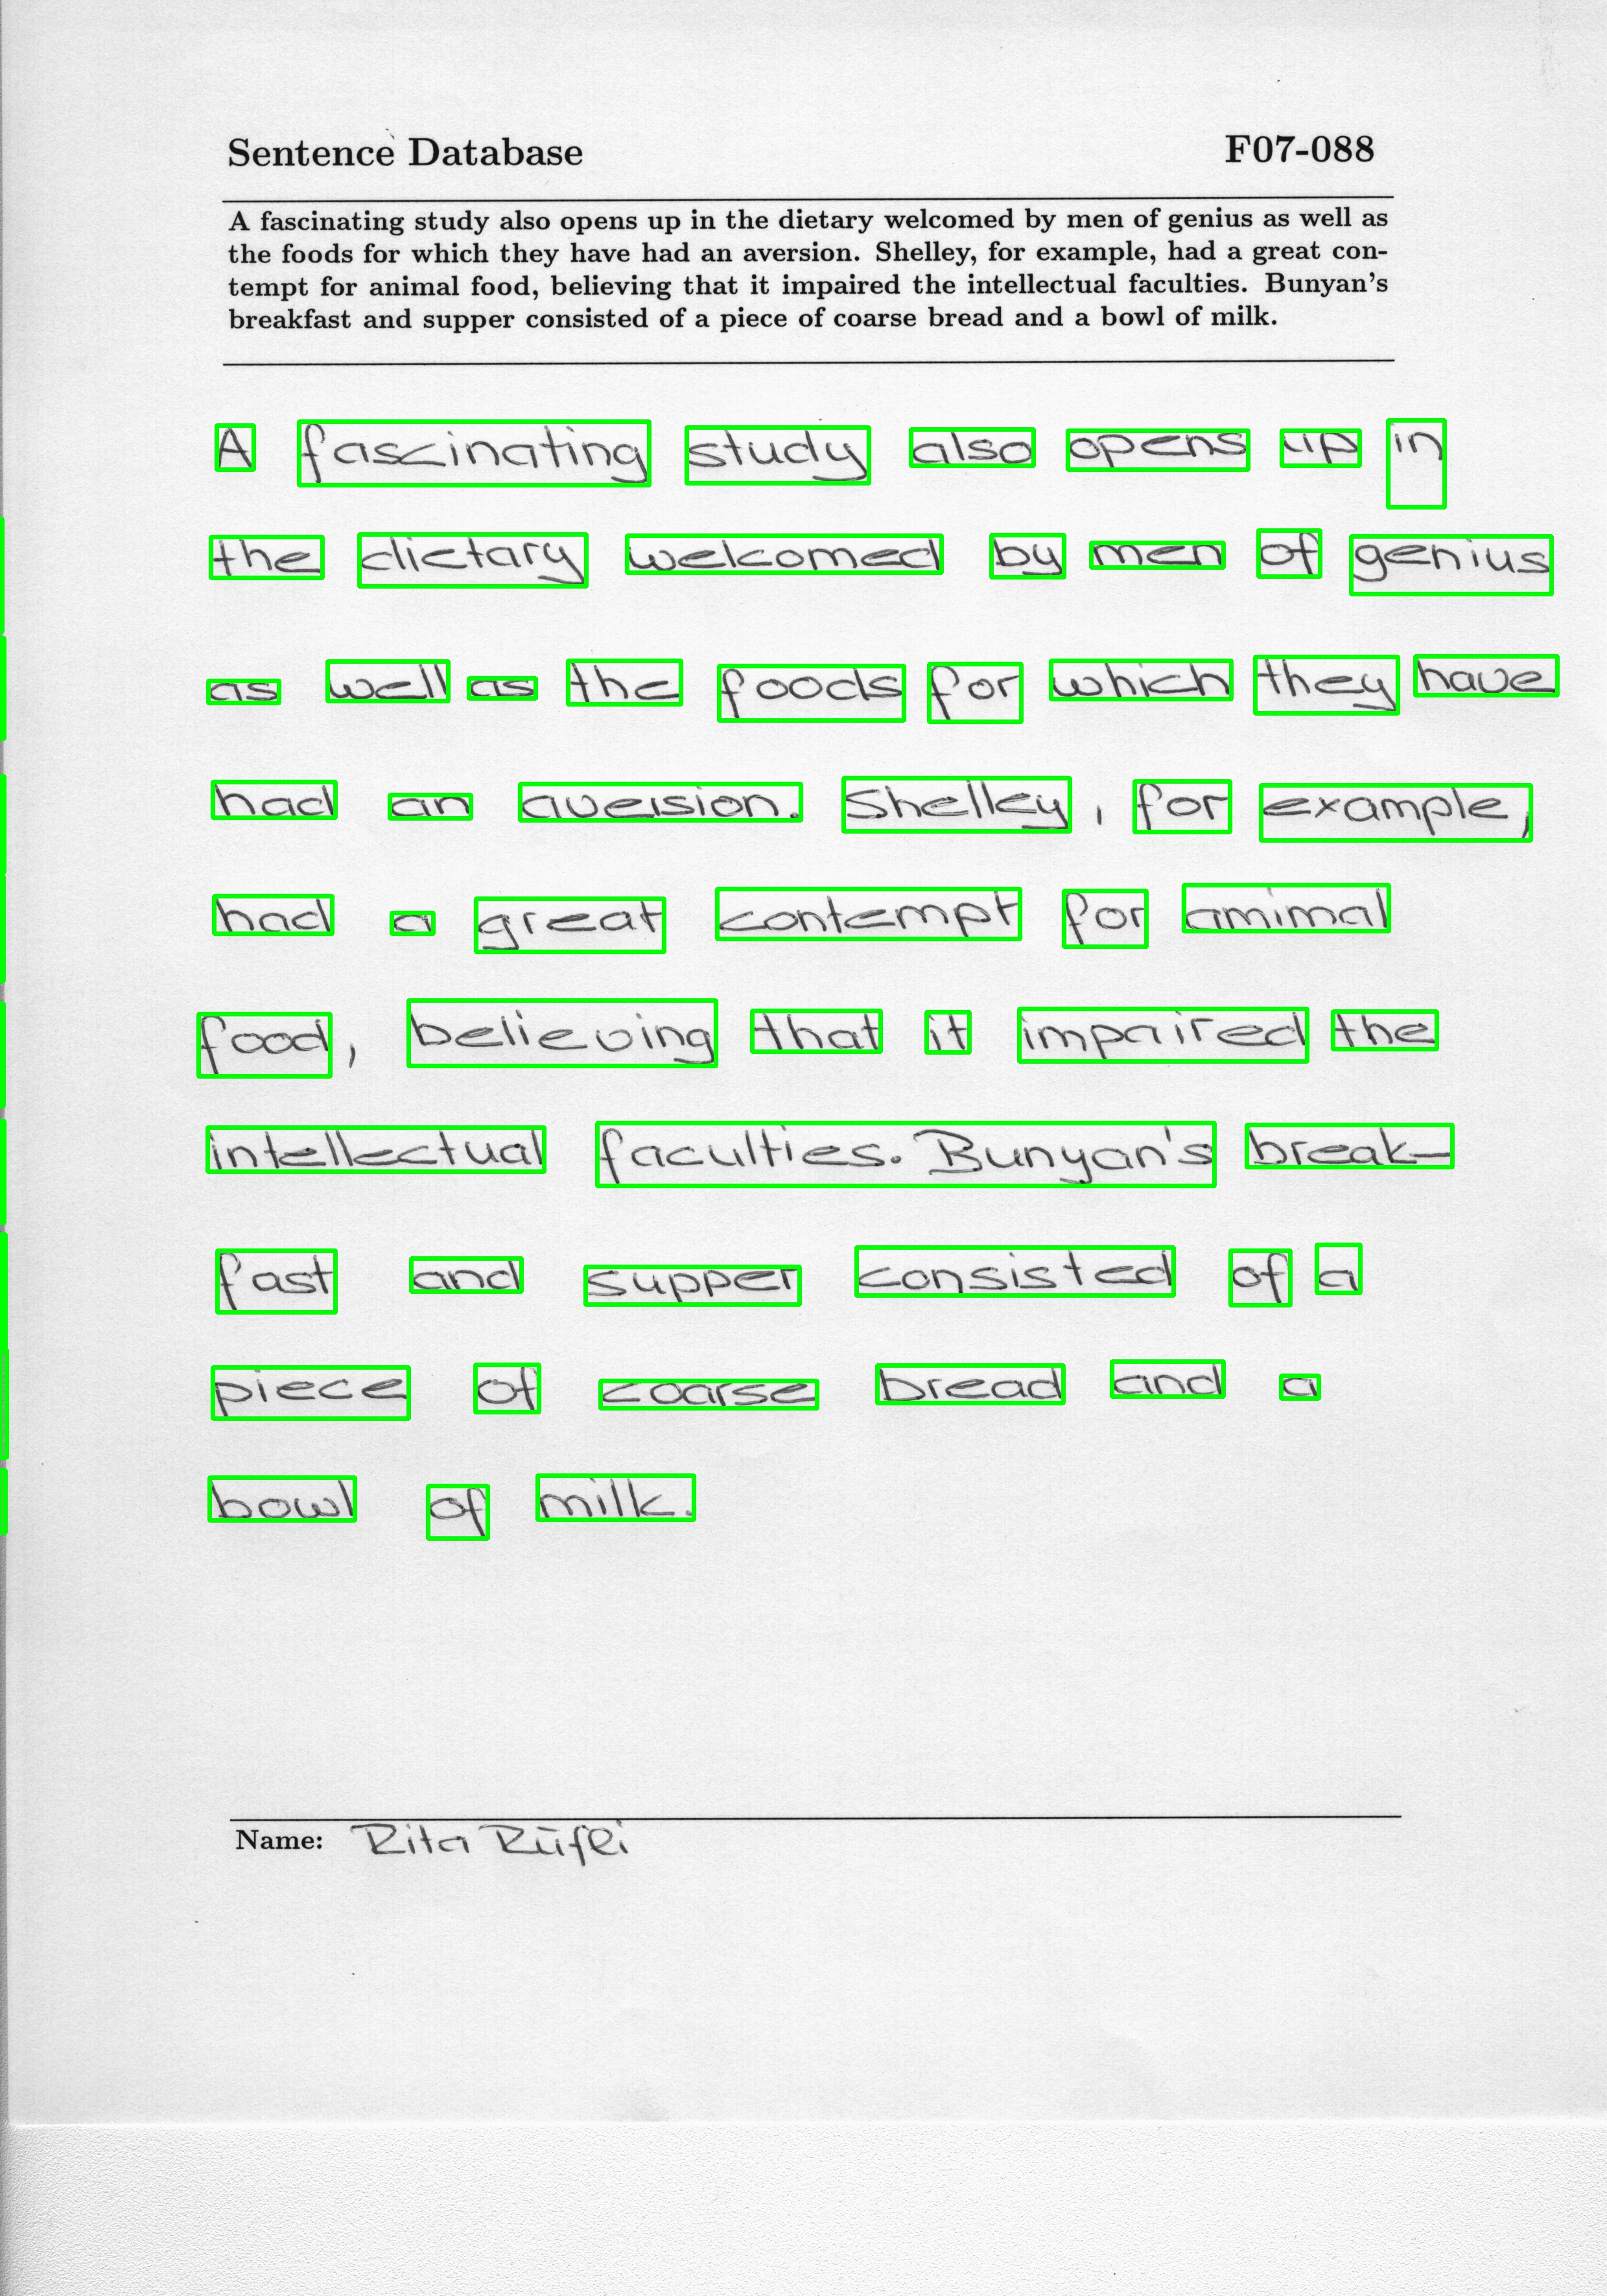 Sentence Database F07-088
A fascinating study also opens up in the dietary welcomed by men of genius as well as
the foods for which they have had an aversion. Shelley, for example, had a great con-
tempt for animal food, believing that it impaired the intellectual faculties. Bunyan's
breakfast and supper consisted of a piece of coarse bread and a bowl of milk.
A fascinating study also opens up in
the dietary welcomed by men of genius
as well as the foods for which they have
had an aversion. Shelley, for example,
had a great contempt for animal
food, believing that it impaired the
intellectual faculties. Bunyan's break-
fast and supper consisted of a
piece of coarse bread and a
bowl of milk.
Name: Rita Rüfli